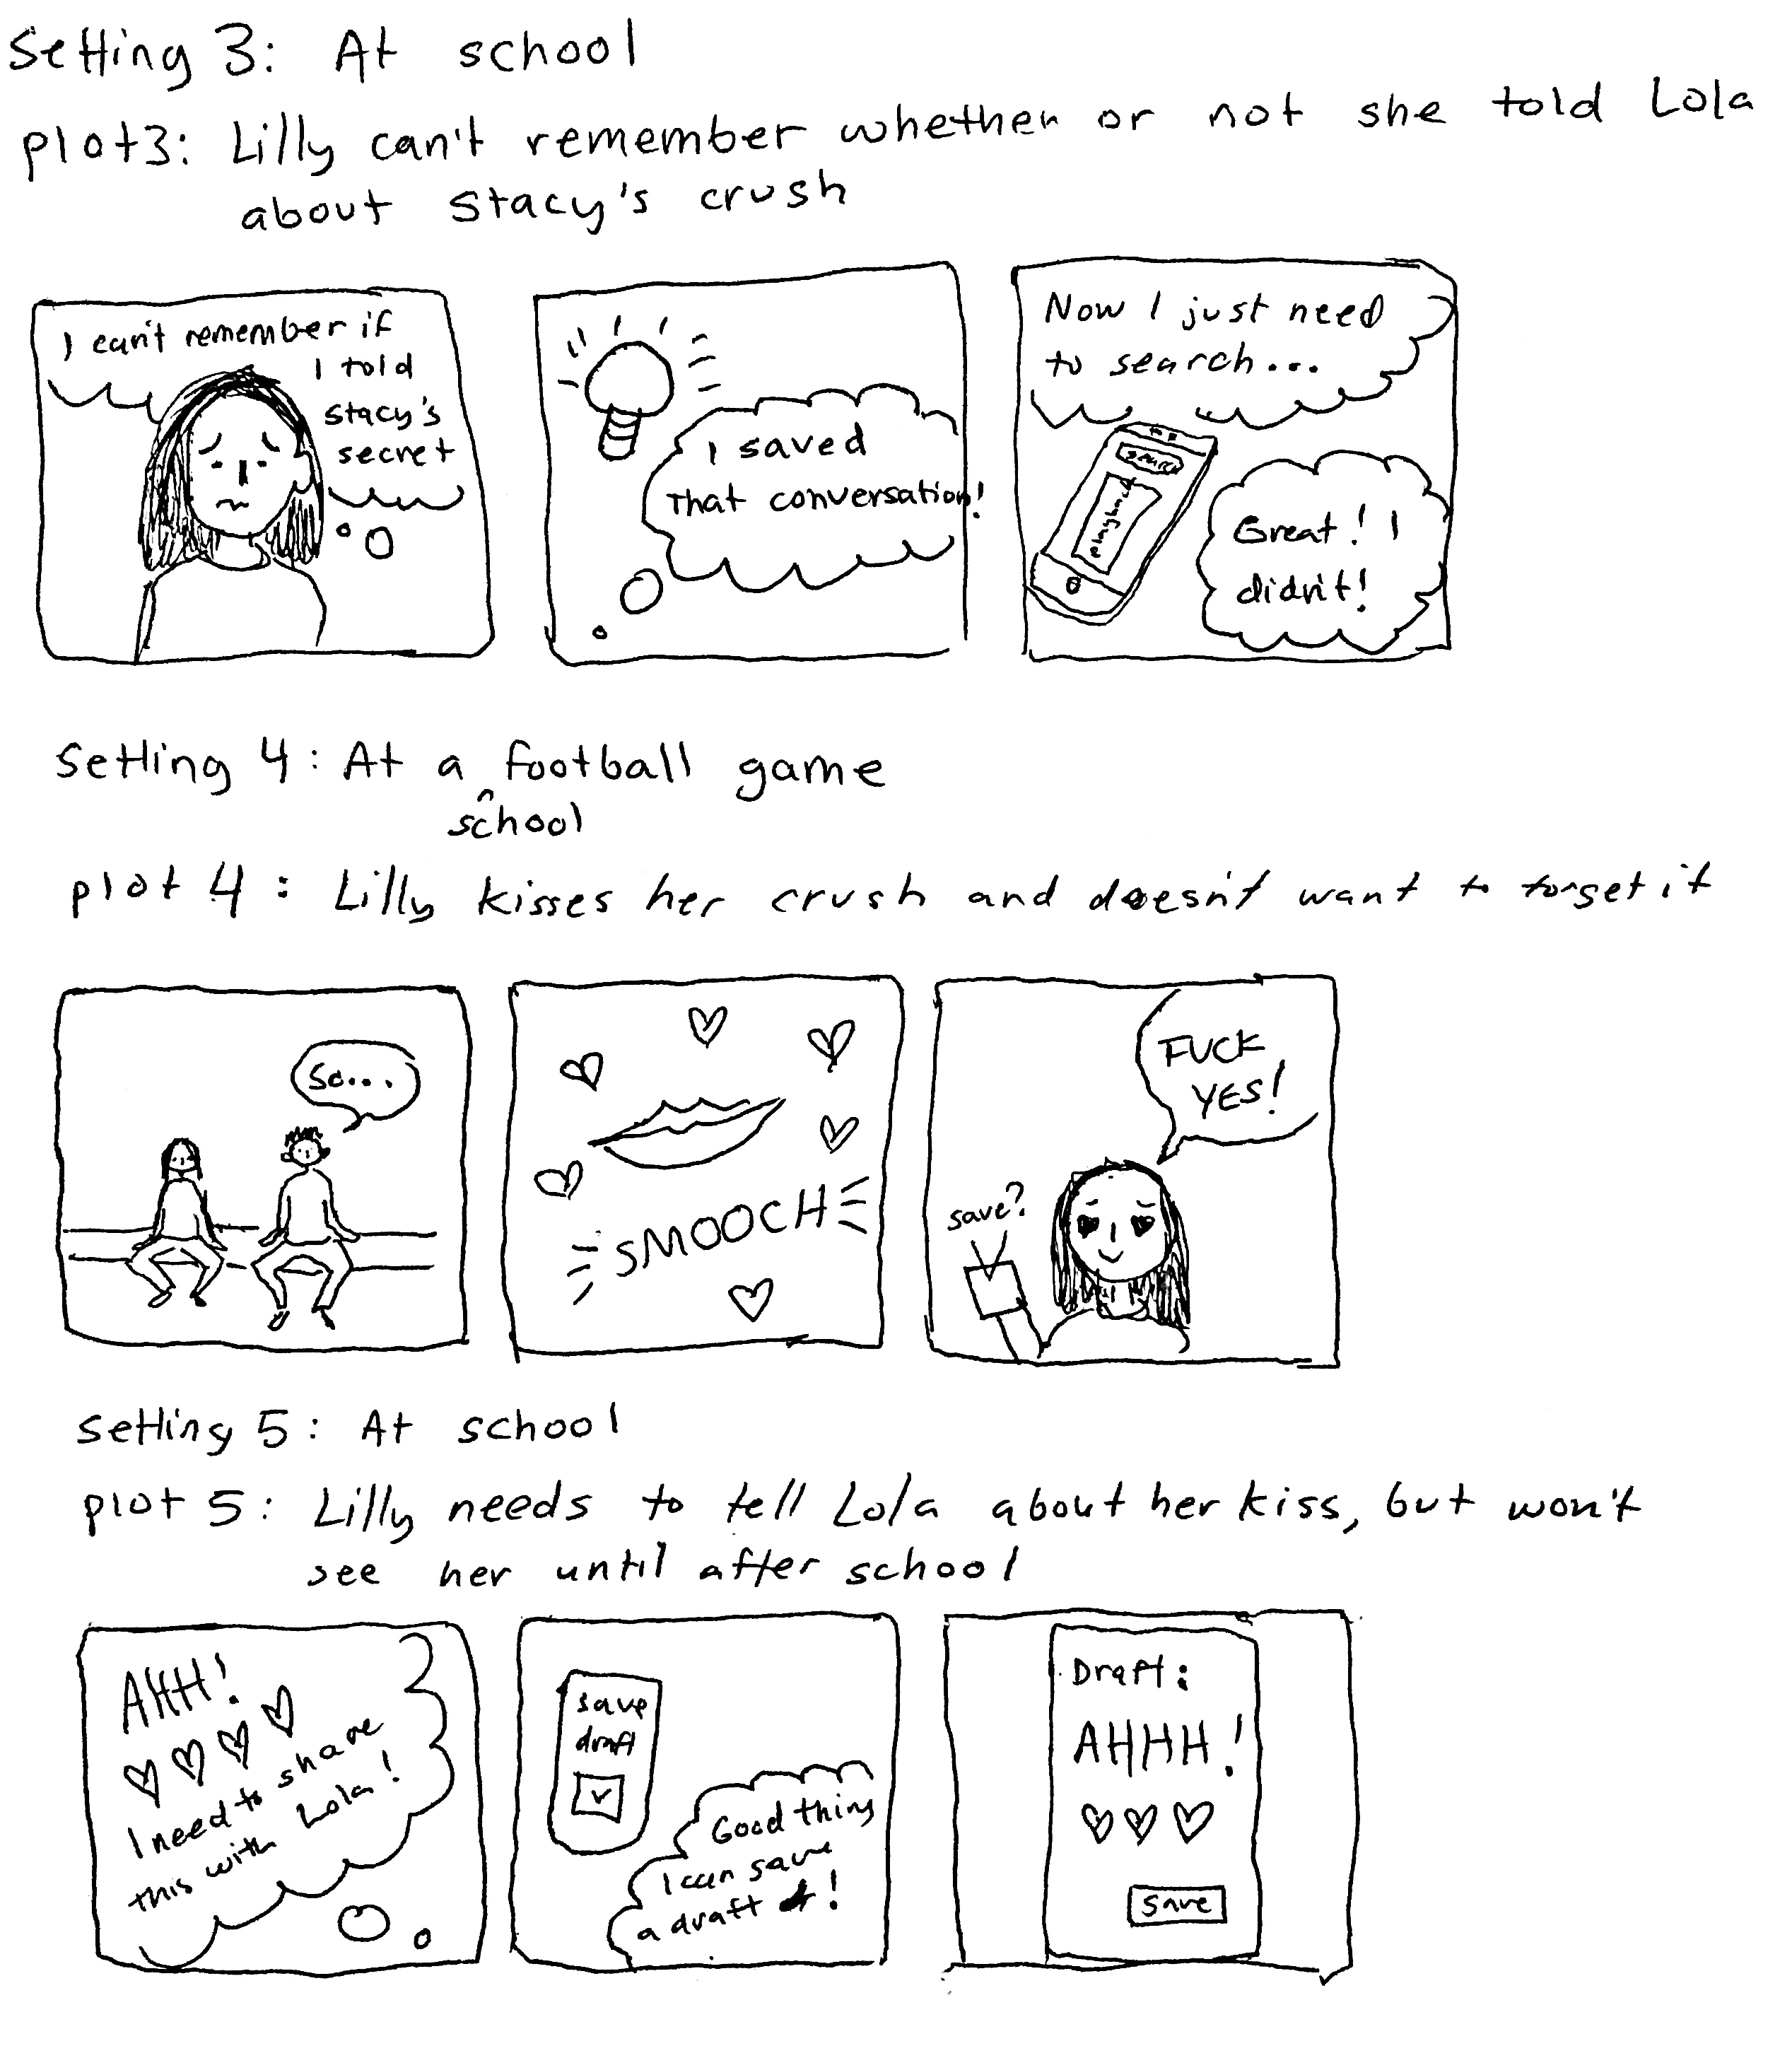 Setting 3: At school
plot3: Lilly can't remember whether or not she told Lola
about Stacy's crush
I can't remember if
I told
stacy's
secret
I saved
That conversation!
Now I just need
to search...
search
Great! I
didn't!
Setting 4: At a football game
school
plot 4: Lilly kisses her crush and doesn't want to forget it
So...
SMOOCH
FUCK
YES!
save?
Setting 5: At school
plot 5: Lilly needs to tell Lola about her kiss, but won't
see her until after school
AHH!
I need to share
this with Lola!
save
draft
Good thing
I can save
a draft !
Draft:
AHHH!
save